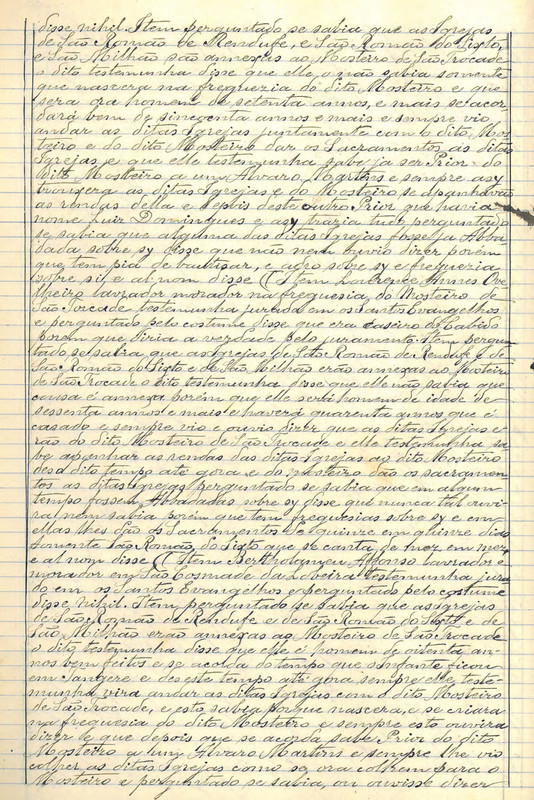 disse nihil. Item perguntado se sabia que as Igrejas
de São Romão de Rendufe, e São Romão do Sisto,
e São Milhão são annexas ao Mosteiro de São Trocade
o dito testemunha disse que elle o não sabia somente
que nascera na freguezia do dito Mosteiro e que
sera ora homem de setenta annos, e mais se acor
dará bem de sincoenta annos e mais e sempre vio
andar as ditas Igrejas juntamente com o dito Mos
teiro e do dito Mosteiro dar os Sacramentos ás ditas
Igrejas, e que elle testemunha sabe ja ser Prior do
dito Mosteiro a um Alvaro Martins e sempre asy
trouxera as ditas Igrejas e do Mosteiro se apanhavão
as rendas della e depois deste outro Prior que havia
nome Luiz Domingues e asy trazia tudo perguntado
se sabia que alguma das ditas Igrejas fosse ja Abba
dada sobre sy disse que não nem ouvio dizer porém
que tem pia de bautisar, e adro sobre sy e freguezia
sobre si, e al nom disse (Item Lourenço Annes Ove
lheiro lavrador morador na freguesia do Mosteiro de
São Torcade testemunha jurado em os Santos Evangelhos
e perguntado pelo costume disse que era caseiro do Cabido
porem que diria a verdade pelo juramento. Item pergun
tado se sabia que as Igrejas de São Romão de Rendufe e de
São Romão do Sisto e de São Milhão erão annexas ao Mosteiro
de São Trocade o dito testemunha disse que elle não sabia que
causa é annexa porém que elle será homem de idade de
sessenta annos e mais e haverá quarenta annos que é
casado e sempre vio e ouvio dizer que as ditas Igrejas e
rão do dito Mosteiro de São Trocade e elle testemunha sa
be apanhar as rendas das ditas Igrejas ao dito Mosteiro
desd dito tempo até gora e do mosteiro dão os sacramen
tos as ditas igrejas perguntado se sabia que em algum
tempo fossem Abbadadas sobre sy disse que nunca tal ouvi
ra nem sabia porém que tem freguesias sobre sy e em
ellas lhes dão os Sacramentos de quinze em quinze dias
somente São Romão do Sisto que se canta de mez em mez,
e al nom disse (Item Bertholameu Affonso lavrador e
morador em São Cosmade da Lobeira testemunha jura
do em os Santos Evangelhos e perguntado pelo costume
disse nihil. Item perguntado se sabia que as Igrejas
de São Romão de Rendufe e de São Romão do Sisto e de
São Milhão erão annexas ao Mosteiro de São Trocade
o dito testemunha disse que elle é homem de oitenta an
nos bem feitos e se acorda do tempo que o Infante ficou
em Tangere e des este tempo até gora sempre elle teste
munha vira andar as ditas Igrejas com o dito Mosteiro
de São Trocade, e esto sabia porque nascera, e se criara
na freguesia do dito Mosteiro e sempre esto ouvira
dizer e que depois que se acorda sabe Prior do dito
Mosteiro a um Alvaro Martins e sempre lhe vio
colher as ditas Igrejas como se ora colhem para o
Mosteiro e perguntado se sabia, ou ouvisse dizer